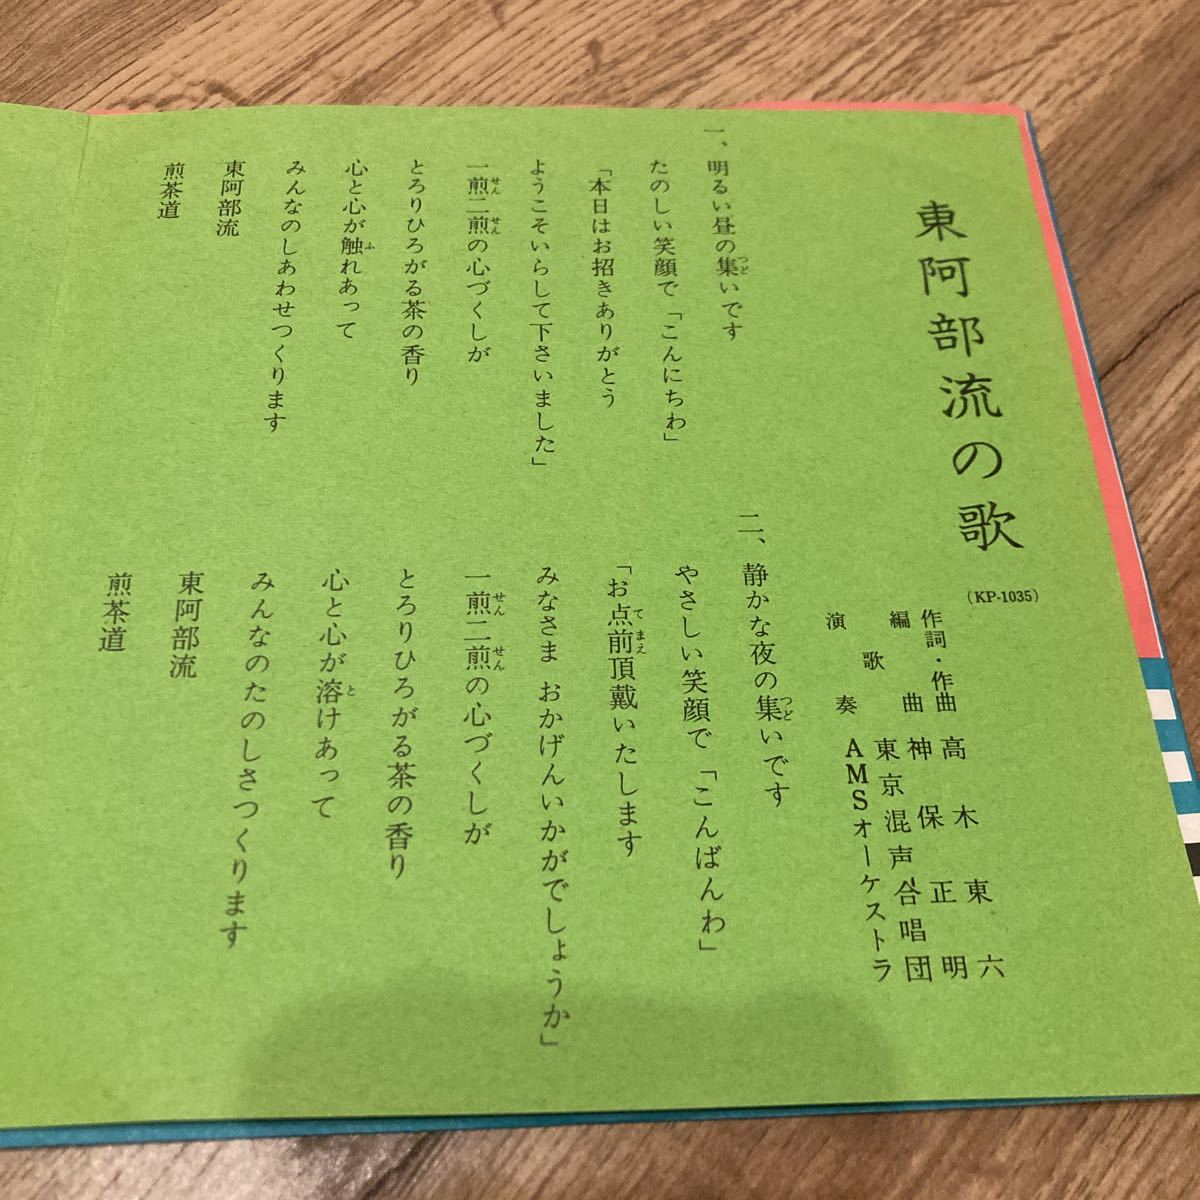 東阿部流の歌
(KP-1035)
作詞・作曲 高木東六
編曲 神保正明
歌 東京混声合唱団
演奏 AMSオーケストラ
一、明るい昼の集いです
つど
たのしい笑顔で「こんにちわ」
「本日はお招きありがとう
ようこそいらして下さいました」
一煎二煎の心づくしが
せん せん
とろりひろがる茶の香り
心と心が触れあって
ふ
みんなのしあわせつくります
東阿部流
煎茶道
二、静かな夜の集いです
つど
やさしい笑顔で「こんばんわ」
「お点前頂戴いたします
てまえ
みなさま おかげんいかがでしょうか」
一煎二煎の心づくしが
せん せん
とろりひろがる茶の香り
心と心が溶けあって
と
みんなのたのしさつくります
東阿部流
煎茶道